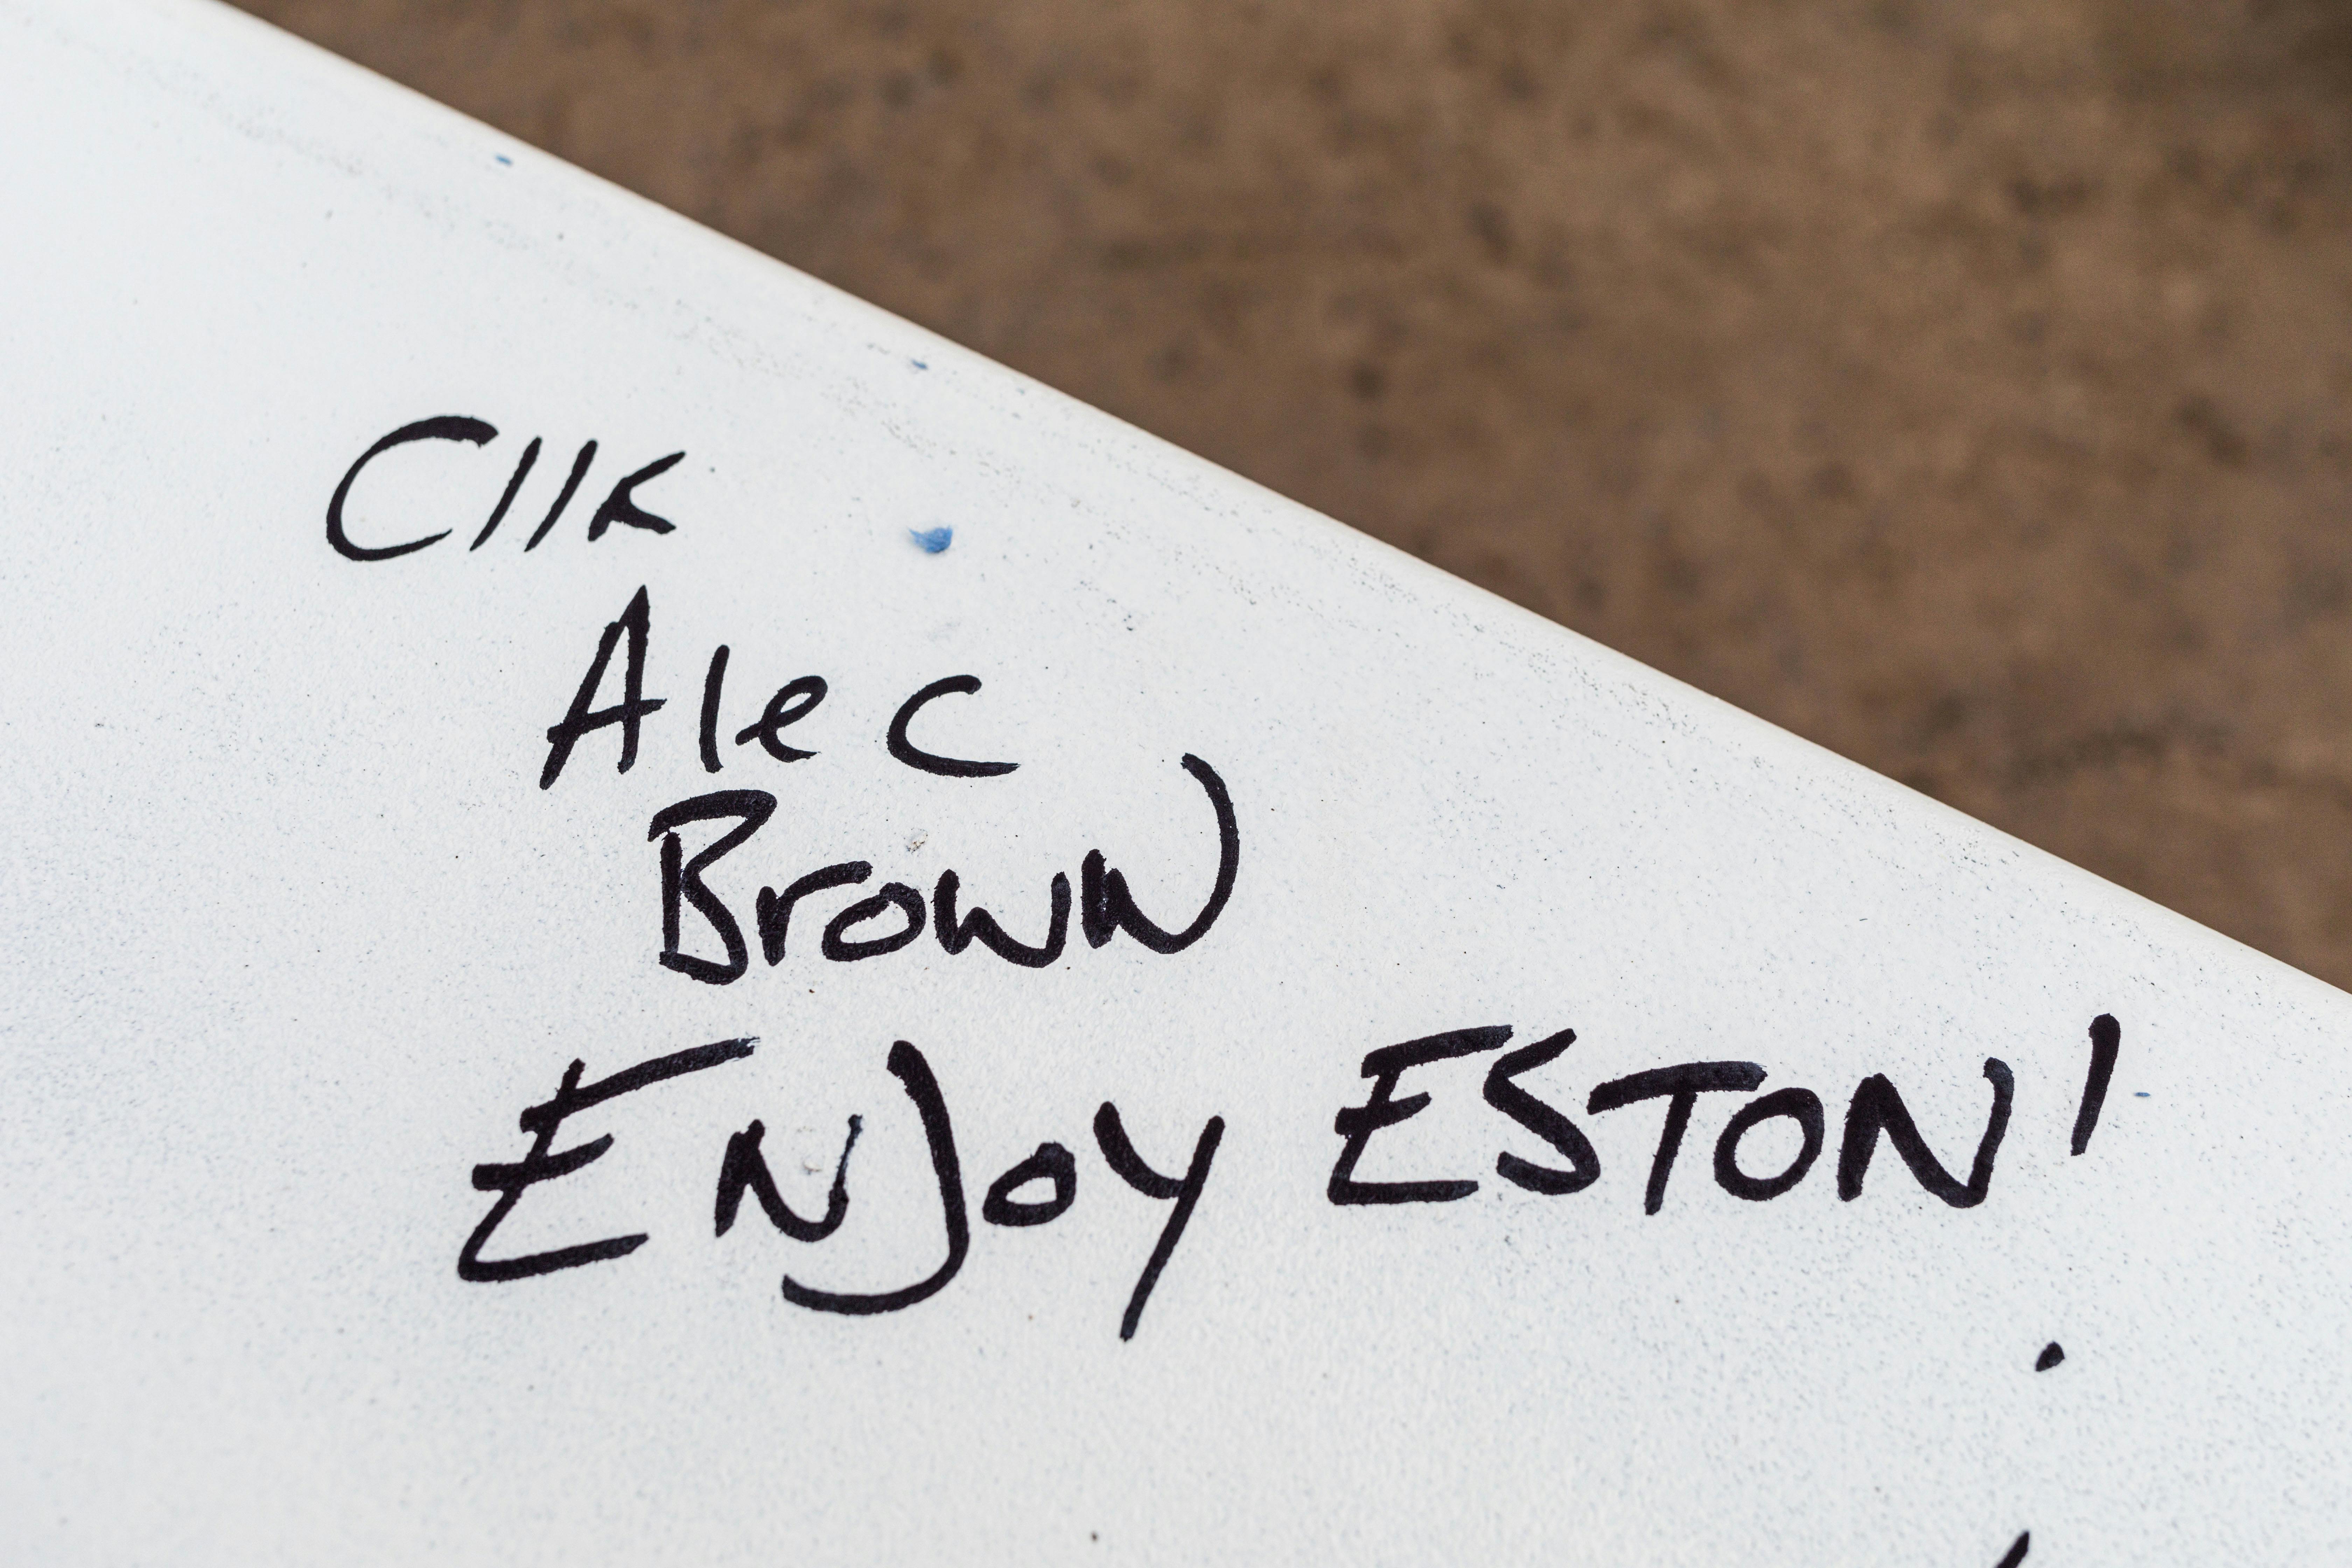 Cllr
Alec
Brown
ENJoy ESTON!